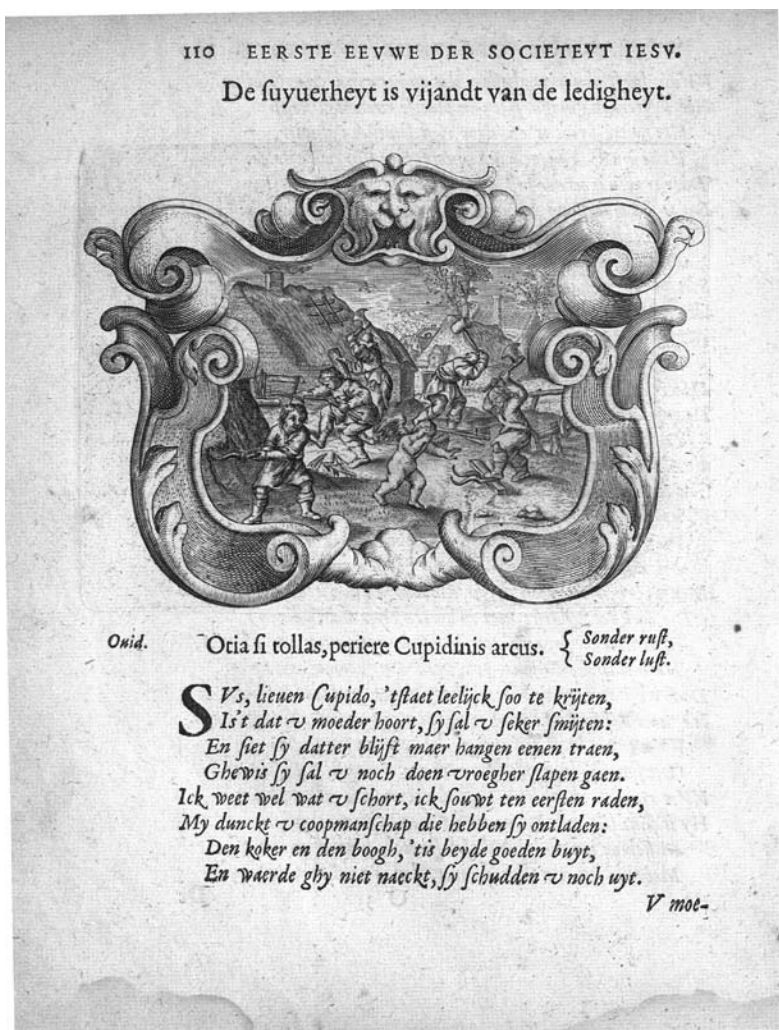 110 EERSTE EEVWE DER SOCIETEYT IESV.
De ſuyuerheyt is vijandt van de ledigheyt.
Ouid. Otia ſi tollas, periere Cupidinis arcus. { Sonder ruſt,
Sonder luſt.
SVs, lieuen Cupido, 'tſtaet leelijck ſoo te krijten,
Is't dat v moeder hoort, ſy ſal v ſeker ſmijten:
En ſiet ſy datter blijft maer hangen eenen traen,
Ghewis ſy ſal v noch doen vroegher ſlapen gaen.
Ick weet wel wat v ſchort, ick ſouwt ten eerſten raden,
My dunckt v coopmanſchap die hebben ſy ontladen:
Den koker en den boogh, 'tis beyde goeden buyt,
En waerde ghy niet naeckt, ſy ſchudden v noch uyt.
V moe-